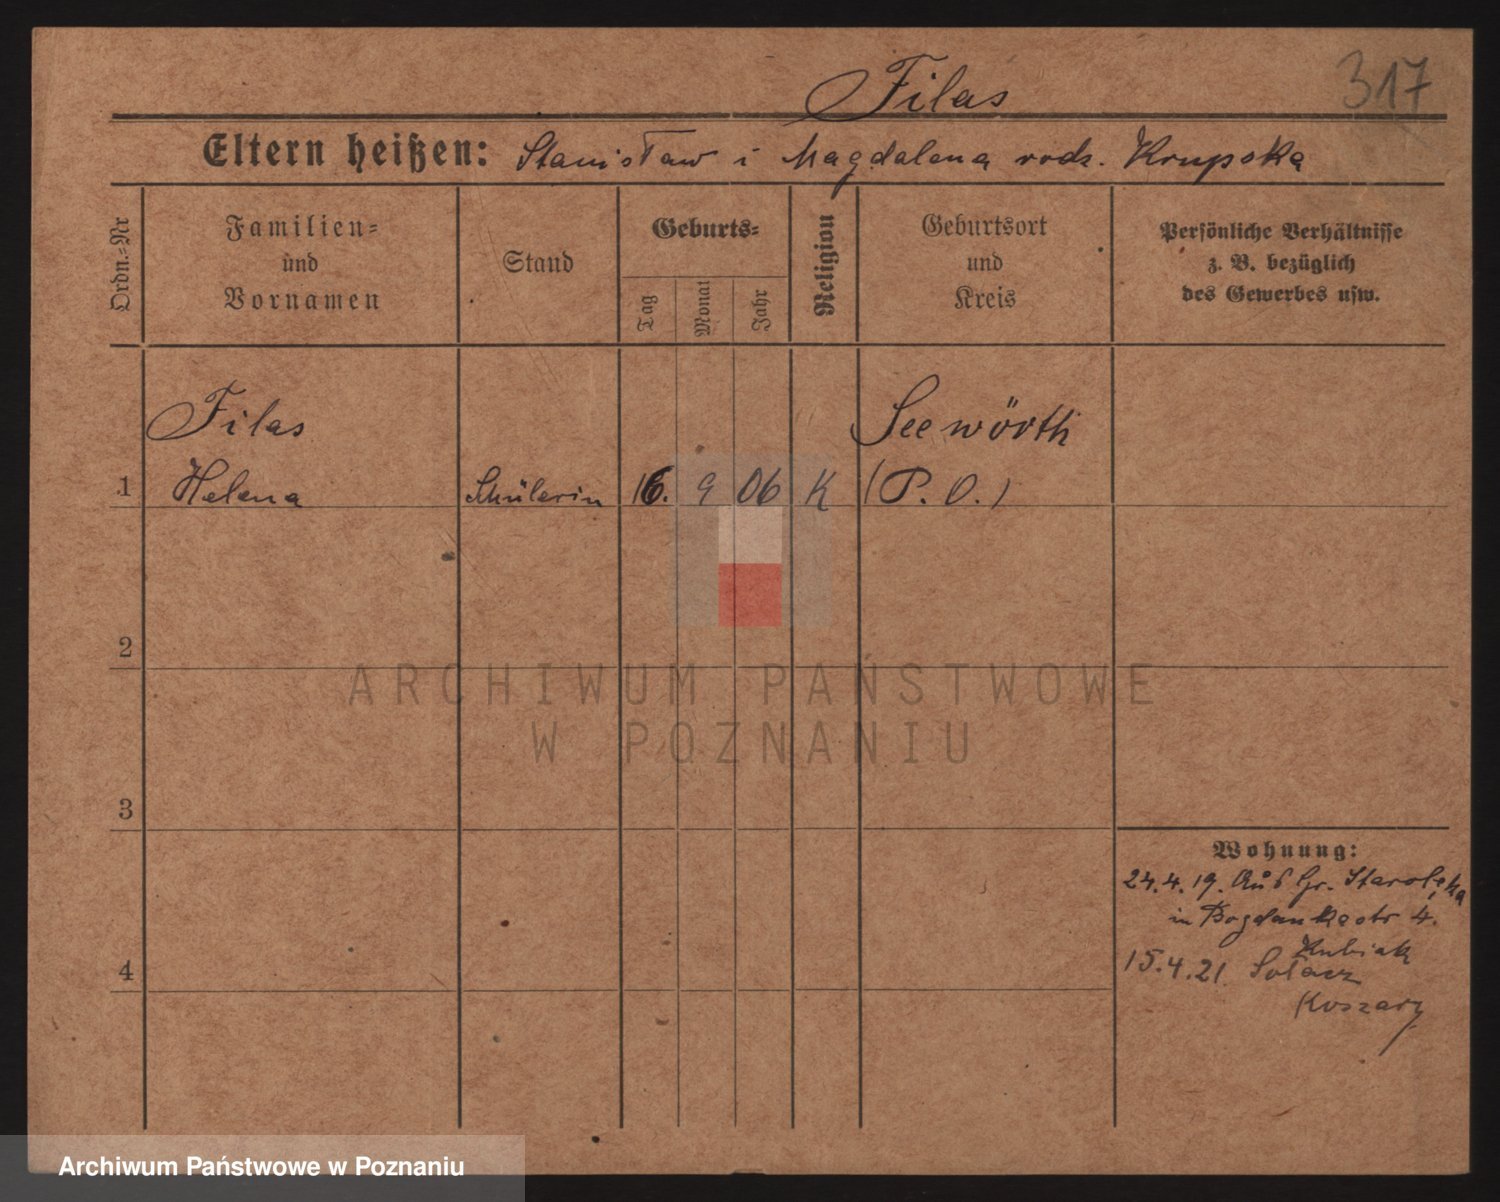 Filas
317
Eltern heißen: Stanisław i Magdalena rodz. Krupska
Ordn.-Nr
Familien-
und
Vornamen
Stand
Geburts-
Tag
Monat
Jahr
Religion
Geburtsort
und
Kreis
Persönliche Verhältnisse
z. B. bezüglich
des Gewerbes usw.
Filas
Seewörth
1 Helena Schülerin 16. 9 06 K (P. O.)
2
3
4
Wohnung:
24.4.19. Aus Gr. Starolęka
in Bogdankastr 4.
Kubiak
15.4.21. Sołacz
Koszary
ARCHIWUM PAŃSTWOWE
W POZNANIU
Archiwum Państwowe w Poznaniu